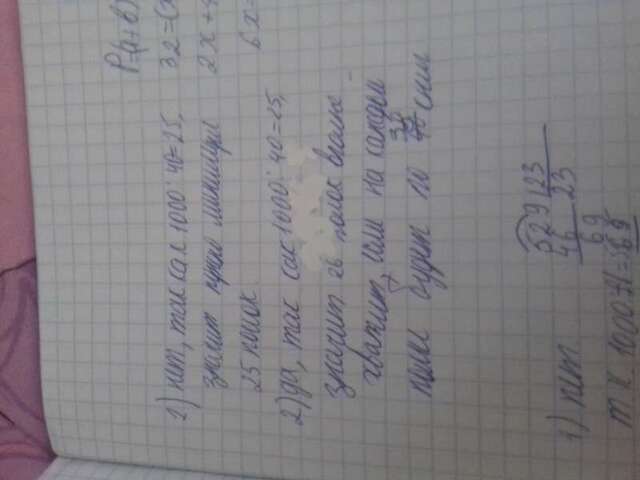 P=(a+b)
1) нет, так как 1000:40=25,
32=(x
значит нужно минимум
2x+4
25 полок.
6x=
2) да, так как 1000:40=25,
значит 26 полок вполне
хватит, если на каждой
полке будет по 38 книг
529 | 23
46 23
1) нет
69
т.к. 1000:41=
69